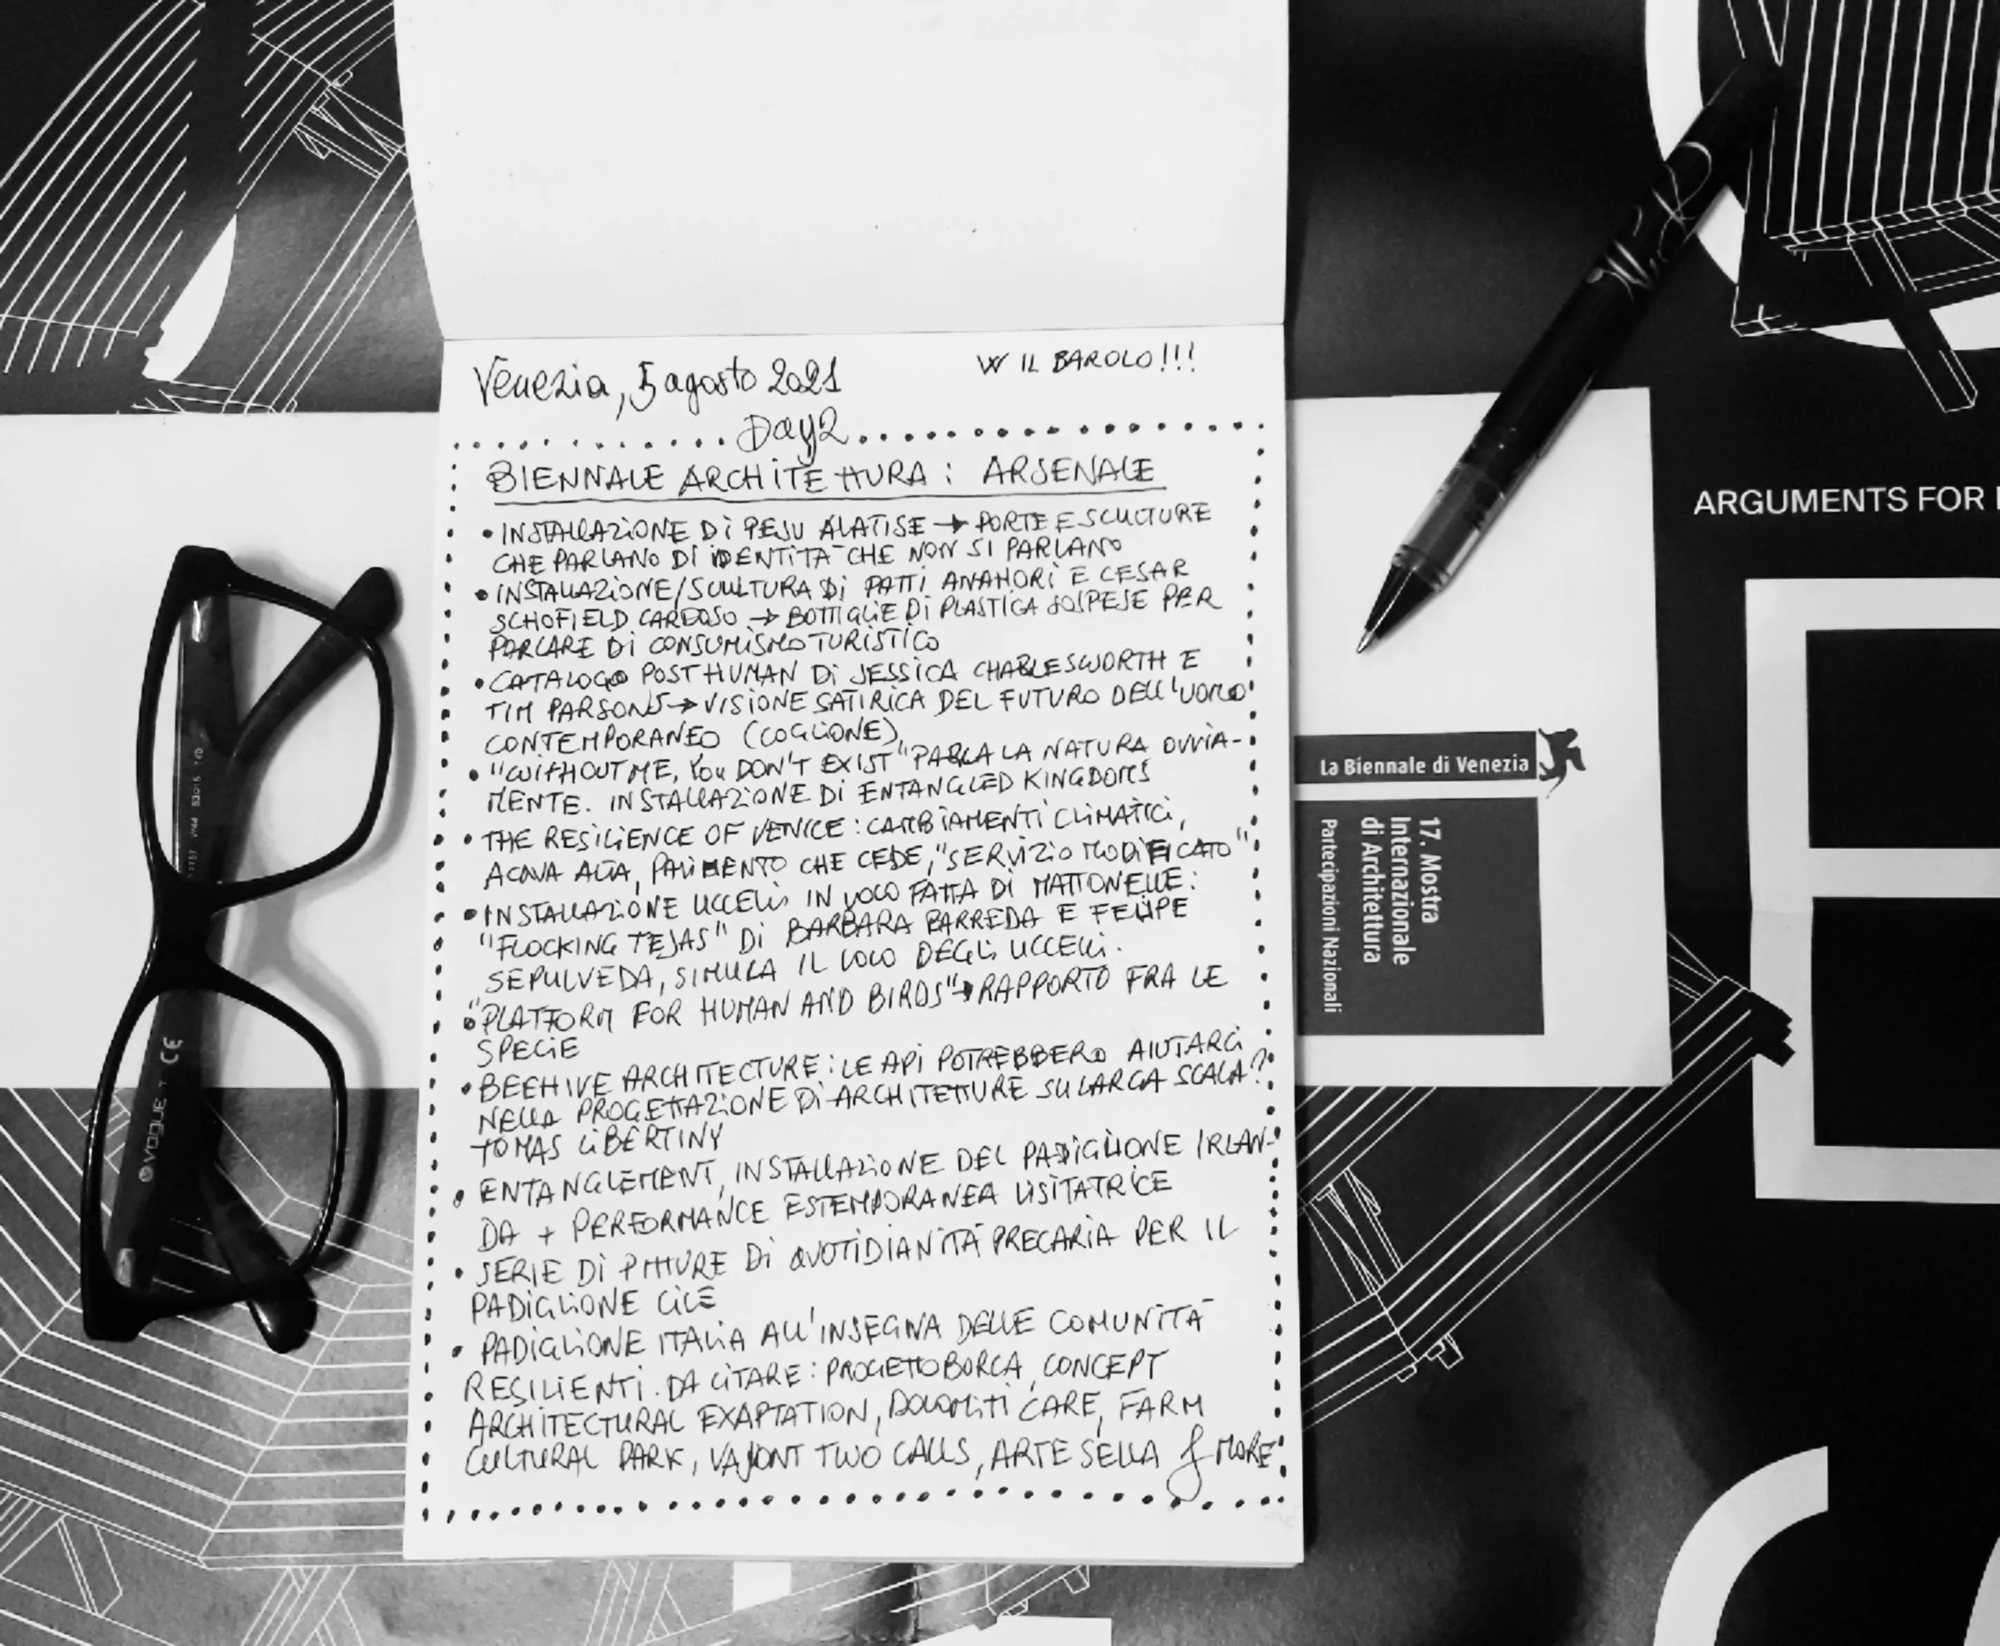 Venezia, 5 agosto 2021
W IL BAROLO!!!
Day2
BIENNALE ARCHITETTURA: ARSENALE
• INSTALLAZIONE Di PESU ALATISE → PORTE E SCULTURE
CHE PARLANO DI IDENTITÀ CHE NON SI PARLANO
• INSTALLAZIONE/SCULTURA Di PATTI ANAHORI E CESAR
SCHOFIELD CARDOSO → BOTTIGLIE Di PLASTICA SOSPESE PER
PARLARE Di CONSUMISMO TURISTICO
• CATALOGO POST HUMAN Di JESSICA CHARLESWORTH E
TIM PARSONS → VISIONE SATIRICA DEL FUTURO DELL'UOMO
CONTEMPORANEO (COGLIONE)
• "WITHOUT ME, YOU DON'T EXIST" PARLA LA NATURA OVVIA-
MENTE. INSTALLAZIONE Di ENTANGLED KINGDOMS
• THE RESILIENCE OF VENICE: CAMBIAMENTI CLIMATICI,
ACQUA ALTA, PAVIMENTO CHE CEDE, "SERVIZIO MODIFICATO"
• INSTALLAZIONE UCCELLI IN VOLO FATTA DI MATTONELLE:
"FLOCKING TEJAS" Di BARBARA BARREDA E FELIPE
SEPULVEDA, SIMULA IL VOLO DEGLI UCCELLI.
• "PLATFORM FOR HUMAN AND BIRDS" → RAPPORTO FRA LE
SPECIE
• BEEHIVE ARCHITECTURE: LE API POTREBBERO AIUTARCI
NELLA PROGETTAZIONE Di ARCHITETTURE SU LARGA SCALA?
TOMAS LIBERTINY
• ENTANGLEMENT, INSTALLAZIONE DEL PADIGLIONE IRLAN-
DA + PERFORMANCE ESTEMPORANEA VISITATRICE
• SERIE Di PITTURE Di QUOTIDIANITÀ PRECARIA PER IL
PADIGLIONE CILE
• PADIGLIONE ITALIA ALL'INSEGNA DELLE COMUNITÀ
RESILIENTI. DA CITARE: PROGETTO BORCA, CONCEPT
ARCHITECTURAL EXAPTATION, DOLOMITI CARE, FARM
CULTURAL PARK, VAJONT TWO CALLS, ARTE SELLA & MORE
La Biennale di Venezia
17. Mostra
Internazionale
di Architettura
Partecipazioni Nazionali
ARGUMENTS FOR
VOGUE CE